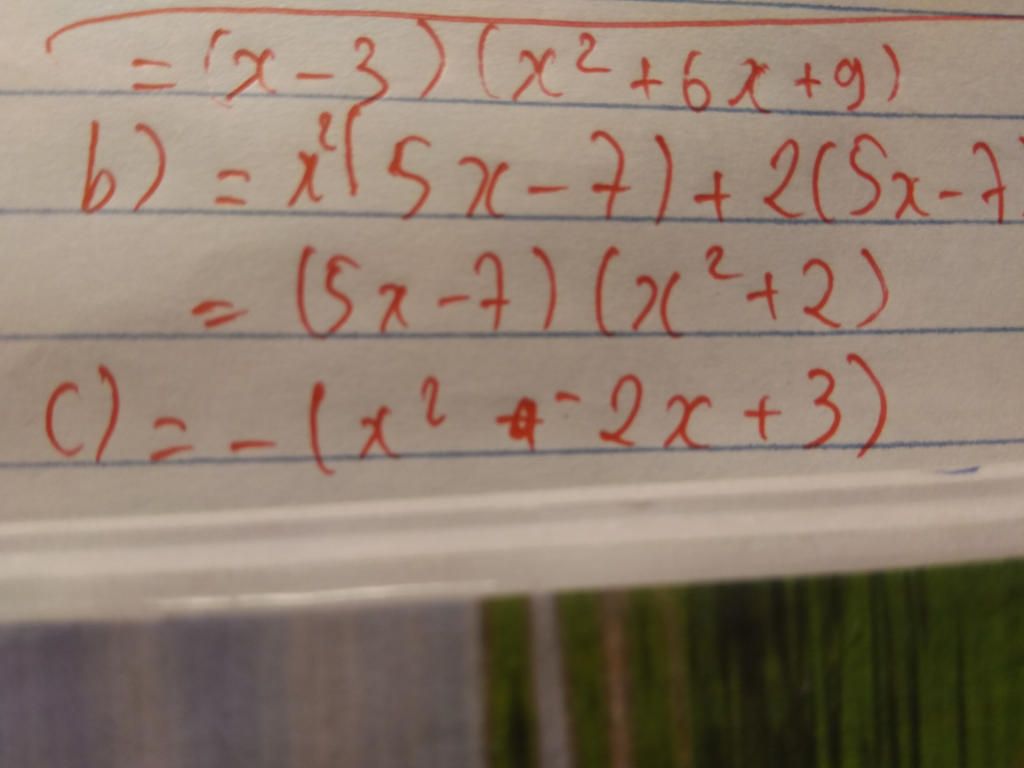 = (x - 3) (x² + 6x + 9)
b) = x² (5x - 7) + 2(5x - 7)
= (5x - 7) (x² + 2)
c) = - (x² - 2x + 3)